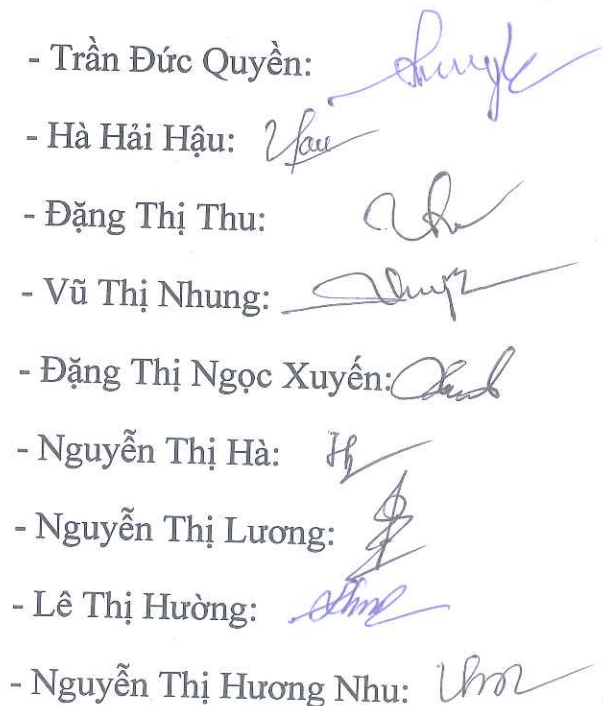 - Trần Đức Quyền:
- Hà Hải Hậu:
- Đặng Thị Thu:
- Vũ Thị Nhung:
- Đặng Thị Ngọc Xuyến:
- Nguyễn Thị Hà:
- Nguyễn Thị Lương:
- Lê Thị Hường:
- Nguyễn Thị Hương Nhu: